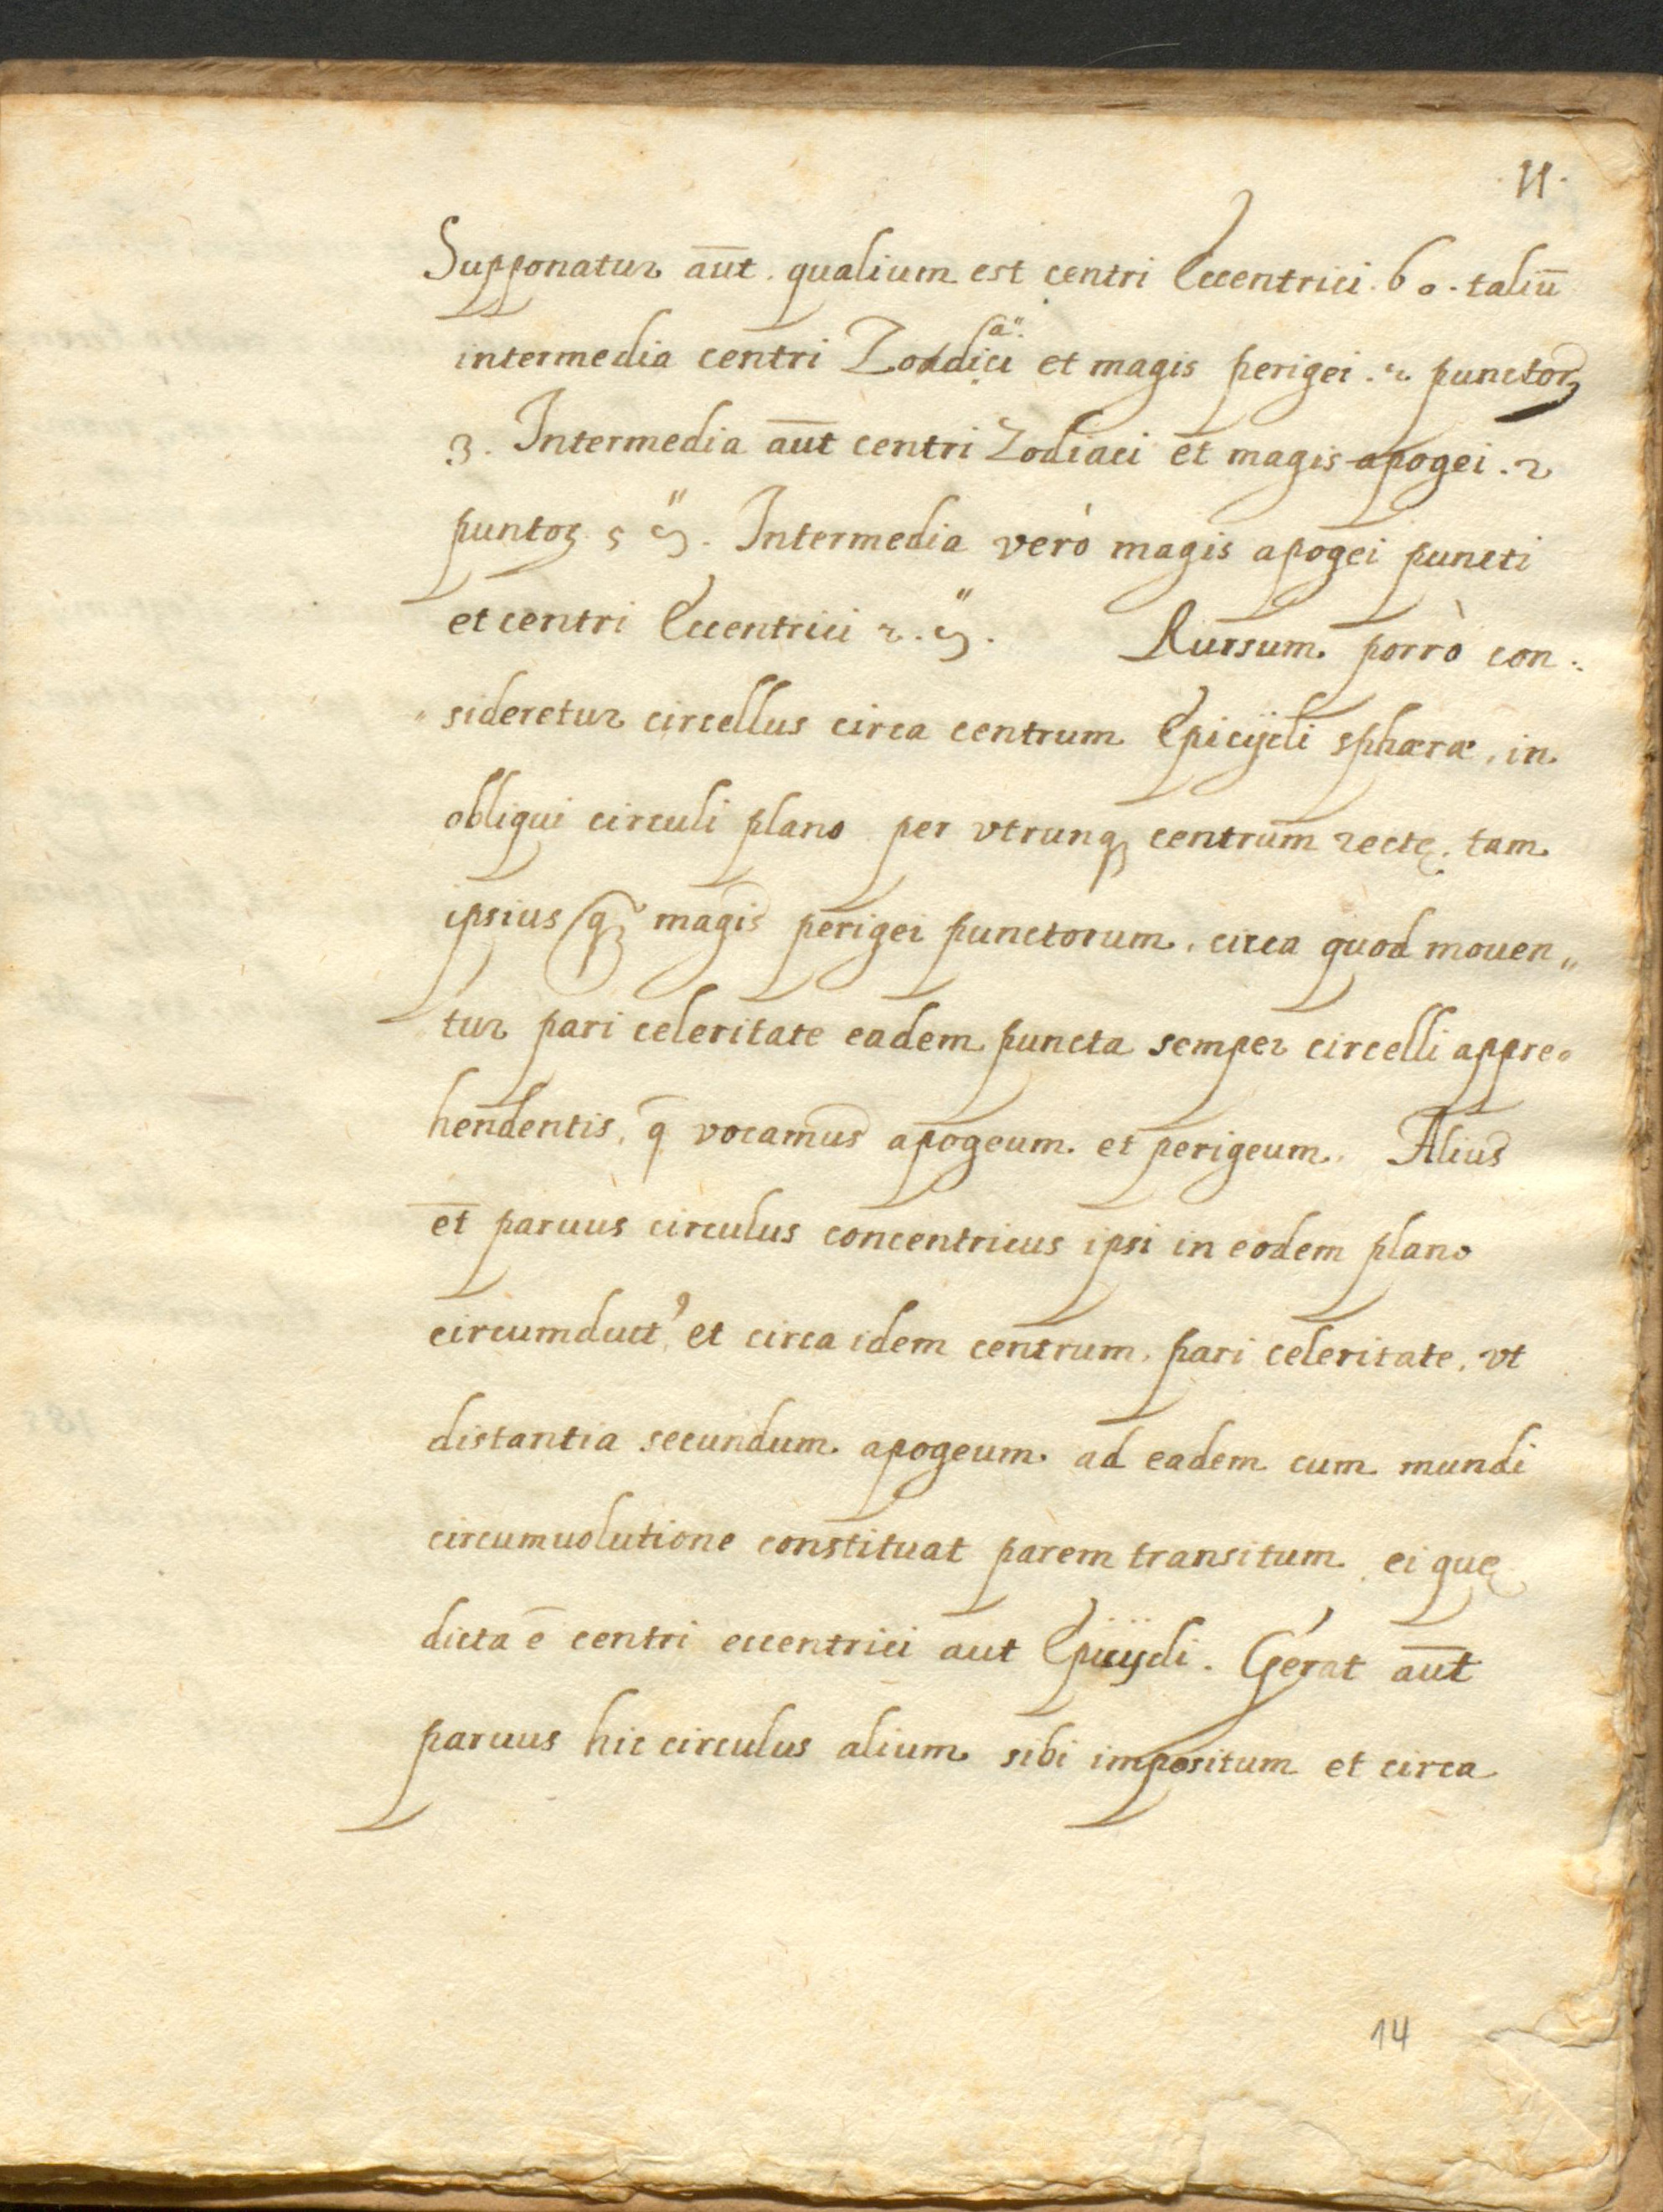 11.
Supponatur aūt. qualium est centri Eccentrici. 60. taliū
intermedia centri Zodiaci et magis perigei. 2 punctorꝝ
3. Intermedia aūt centri Zodiaci et magis apogei. 2
puntoꝝ 5 Intermedia verò magis apogei puncti
et centri Eccentrici 2. Rursum. porrò con:
sideretur circellus circa centrum Epicÿcli sphæræ, in
obliqui circuli plano per vtrunqꝫ centrum rectę. tam
ipsius qꝫ magis perigei punctorum, circa quod mouen„
tur pari celeritate eadem puncta semper circelli appre„
hendentis, q̄ vocamus apogeum. et perigeum. Alius
et̄ paruus circulus concentricus ipsi in eodem plano
circumduct⁹ et circa idem centrum, pari celeritate, vt
distantia secundum. apogeum. ad eadem cum mundi
circumuolutione constituat parem transitum. ei quę
dicta ē centri eccentrici aut Epicÿcli. Gerat aūt
paruus hic circulus alium sibi impositum et circa
14